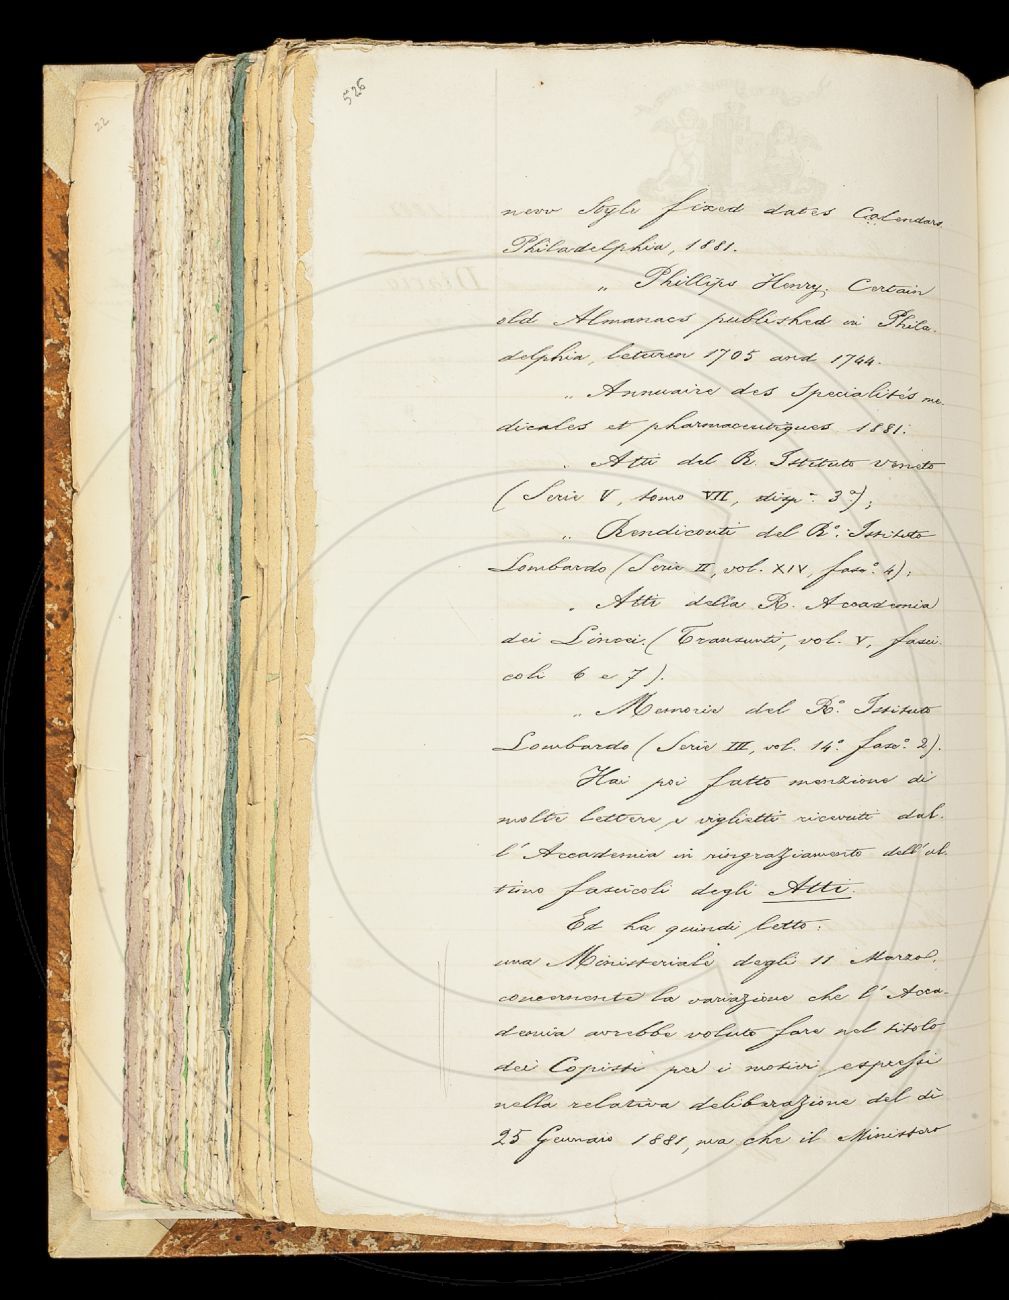 526
22
new Style fixed dates Calendars.
Philadelphia, 1881.
„ Phillips Henry. Certain
old Almanacs published in Phila-
delphia, between 1705 and 1744.
„ Annuaire des Specialités me-
dicales et pharmaceutiques 1881.
„ Atti del R. Istituto Veneto
(Serie V, tomo VII, disp.ª 3ª);
„ Rendiconti del R.º Istituto
Lombardo (Serie II, vol. XIV, fasc.º 4);
„ Atti della R. Accademia
dei Lincei (Transunti, vol. V, fasci-
coli 6 e 7).
„ Memorie del R.º Istituto
Lombardo (Serie III, vol. 14º fasc.º 2).
Hai poi fatto menzione di
molte lettere e viglietti ricevuti dal-
l'Accademia in ringraziamento dell'ul-
timo fascicoli degli Atti.
Ed ha quindi letto:
una Ministeriale degli 11 Marzo,
concernente la variazione che l'Acca-
demia avrebbe voluto fare nel titolo
dei Copisti per i motivi espressi
nella relativa deliberazione del dì
25 Gennaio 1881, ma che il Ministero